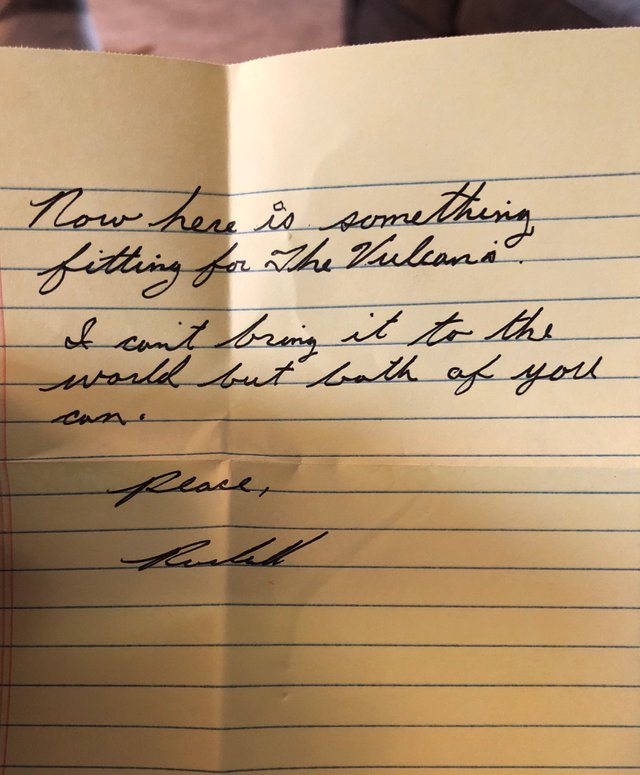 Now here is something
fitting for The Vulcans.
I can't bring it to the
world but both of you
can.
Peace,